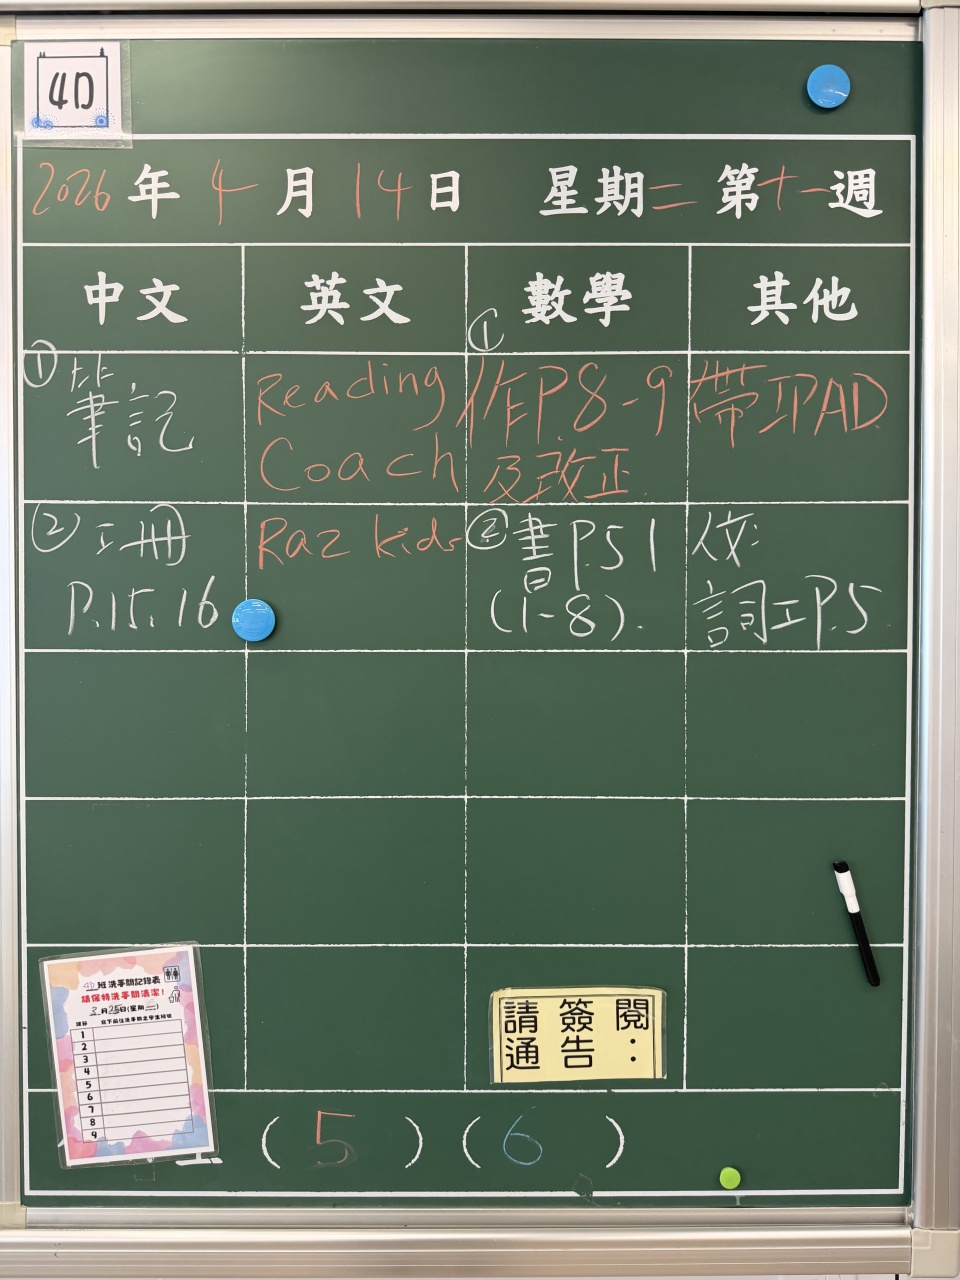 4D
2026年4月14日 星期二 第十一週
中文 英文 數學 其他
① 筆記
Reading
Coach
① 作P.8-9
及改正
帶IPAD
② 工冊
P.15.16
Raz kids
② 書P.51
(1-8).
詞工P.5
4D班洗手間記錄表
請保持洗手間清潔!
3月25日(星期三)
課節
1
2
3
4
5
6
7
8
9
請簽閱
通告:
(5)(6)